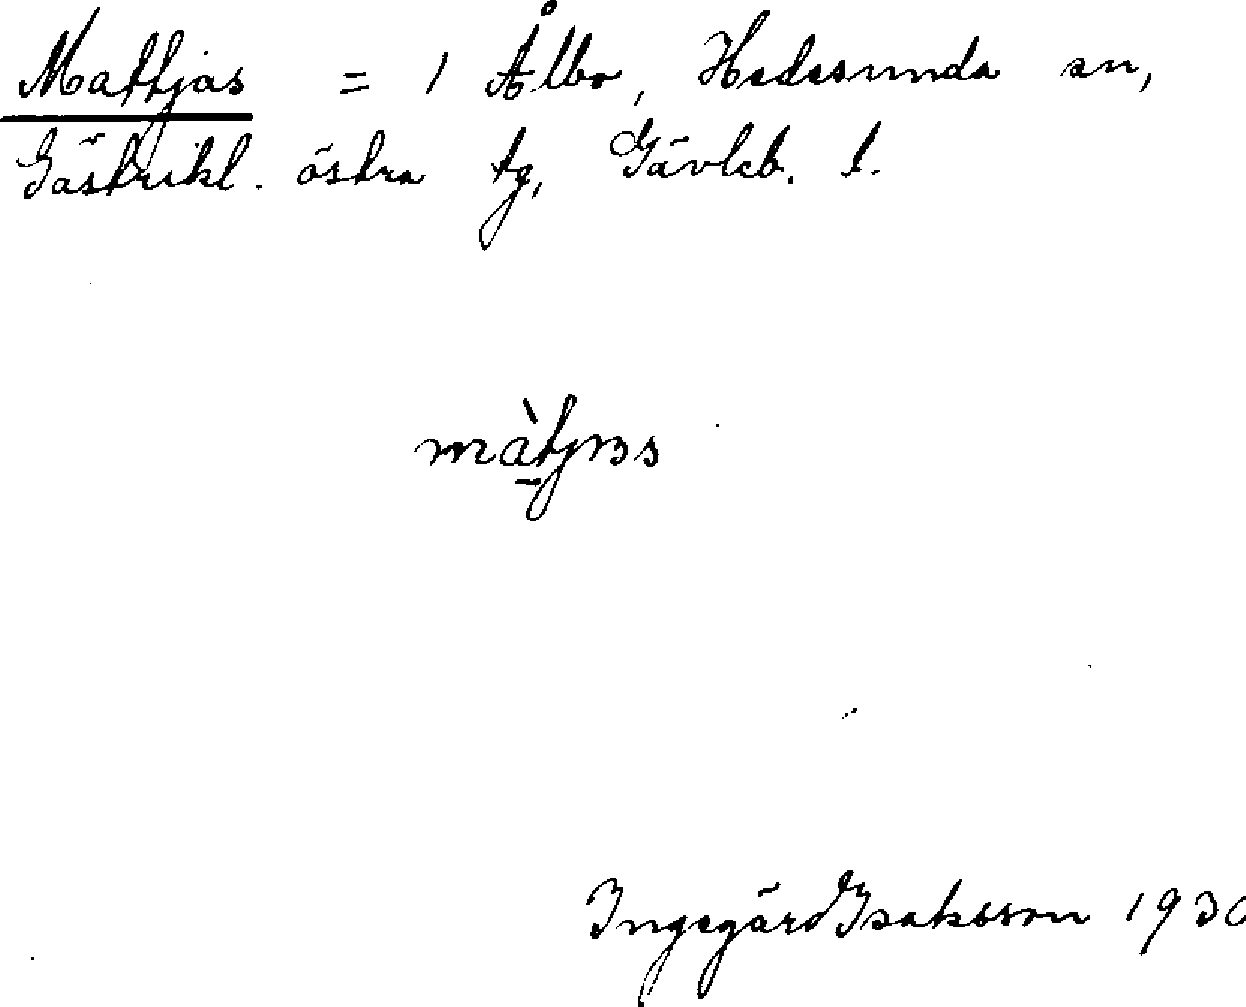 Mattjas = 1 Ålbo, Hedesunda sn,
Gästrikl. östra tg, Gävleb. l.
màtjɐs
Ingegärd Isaksson 1930